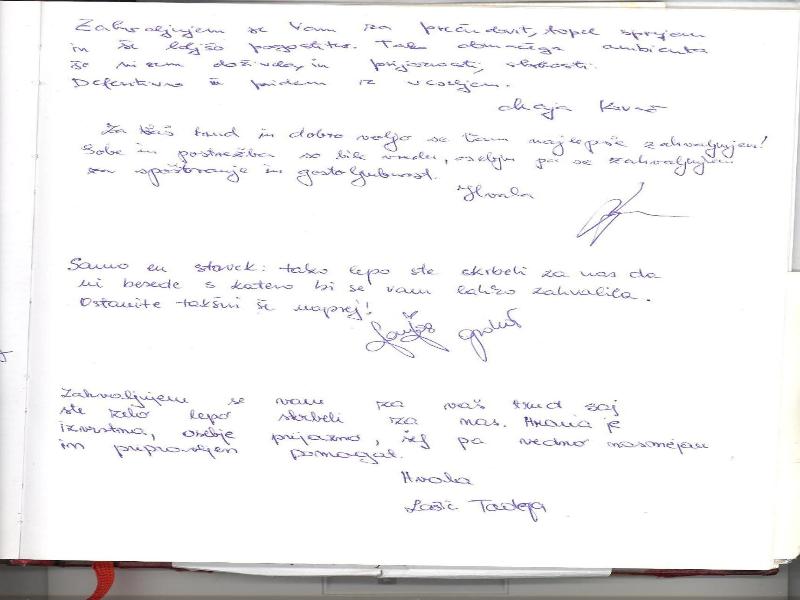 Zahvaljujem se Vam za prečudovit, topel sprejem
in še boljšo pogostitev. Tako domačega ambienta
še nisem doživela, in prijaznosti, skrbnosti.
Definitivno še pridem iz veseljem.
Maja
Za Vaš trud in dobro voljo se Vam najlepše zahvaljujem!
Sobe in postrežba so bile vredu, osebju pa se zahvaljujem
za spoštovanje in gostoljubnost.
Hvala
Samo en stavek: tako lepo ste skrbeli za nas da
ni besede s katero bi se vam lahko zahvalila.
Ostanite takšni še naprej!
Zahvaljujem se vam za vaš trud saj
ste zelo lepo skrbeli za nas. Hrana je
izvrstna, osebje prijazno, šef pa vedno nasmejan
in pripravljen pomagat.
Hvala
Lašič Tadeja